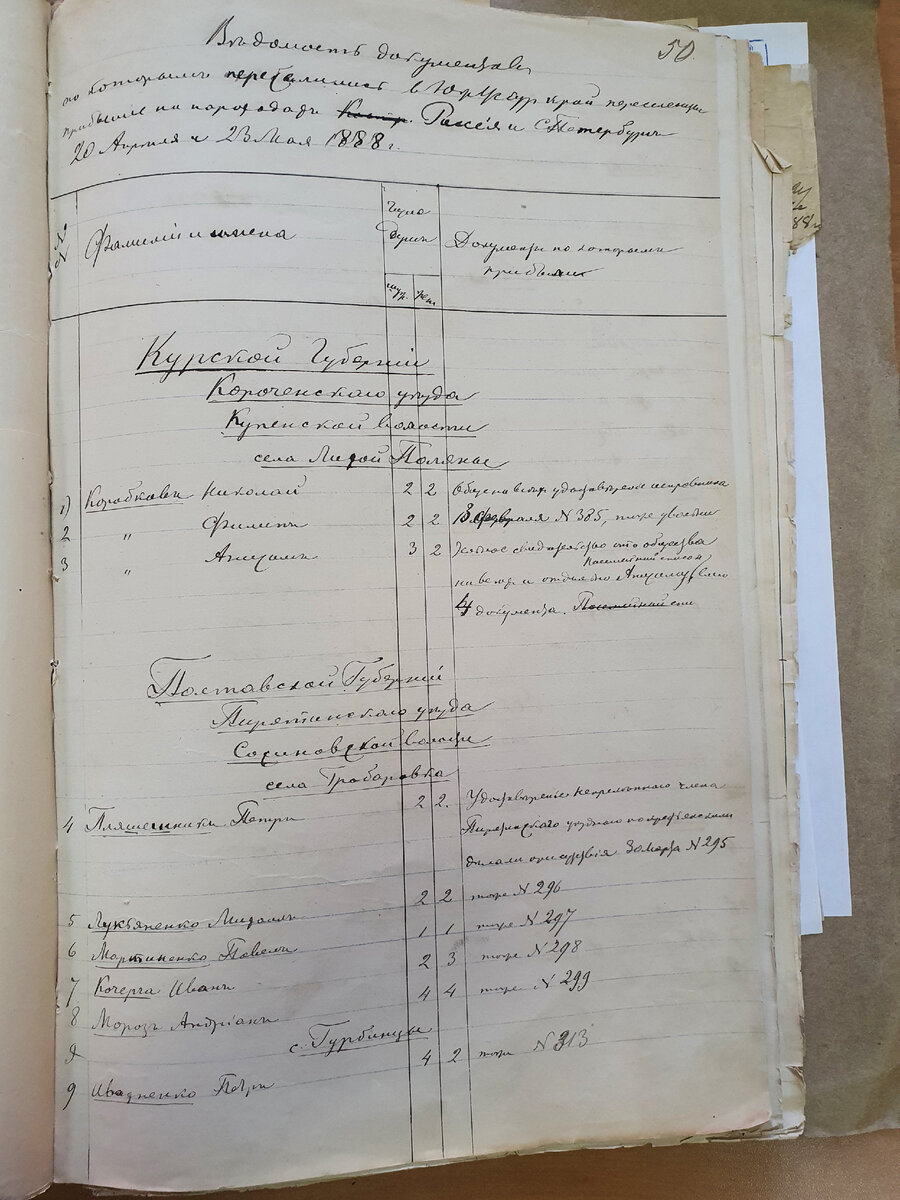 50.
Вѣдомость документовъ
по которымъ переселились в Юж Уссур край переселенцы
прибывшіе на пароходахъ Россія и С Петербургъ
20 Апрѣля и 23 Мая 1888 г.
№ №
Фамиліи и имена
Число
душъ
муж. жен.
Документы по которымъ
прибыли
Курской Губерніи
Короченскаго уѣзда
Купенской волости
села Поляны
1) Коробковъ Николай 2 2 удостовѣреніе исправника
2 " Филипъ 2 2 18 февраля N 385, тоже
3 " 3 2 свидѣтельство что общества
Посемейный списокъ
и отдѣльно
4 документа. Посемейный спи
Полтавской Губерніи
Пирятинскаго уѣзда
волости
села Грабаровка
4 Пляшешника Петръ 2 2. Удостовѣреніе Непремѣннаго члена
Пирятинскаго уѣзднаго по крестьянскимъ
дѣламъ присутствія 30 марта N 295
5 Лукьяненко Михаилъ 2 2 тоже N 296
6 Мартиненко Павелъ 1 1 тоже N 297
7 Кочерга Иванъ 2 3 тоже N 298
8 Морозъ Андріанъ 4 4 тоже N 299
с. Гурбинцы
9
9 Петръ 4 2 тоже N 313
88 г